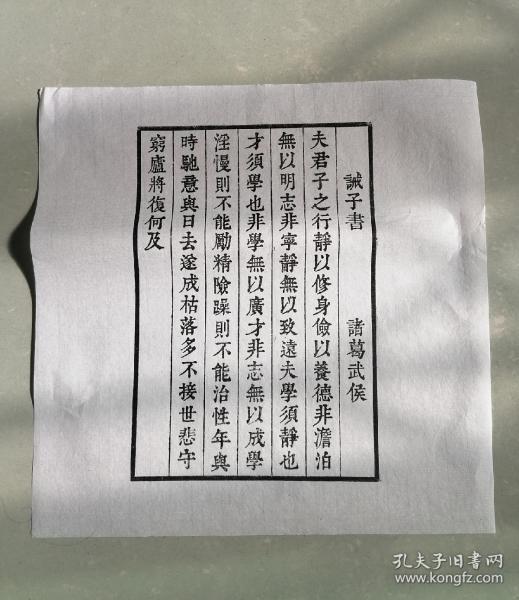 誡子書 諸葛武侯
夫君子之行靜以修身儉以養德非澹泊
無以明志非寧靜無以致遠夫學須靜也
才須學也非學無以廣才非志無以成學
淫慢則不能勵精險躁則不能治性年與
時馳意與日去遂成枯落多不接世悲守
窮廬將復何及
孔夫子旧书网
www.kongfz.com